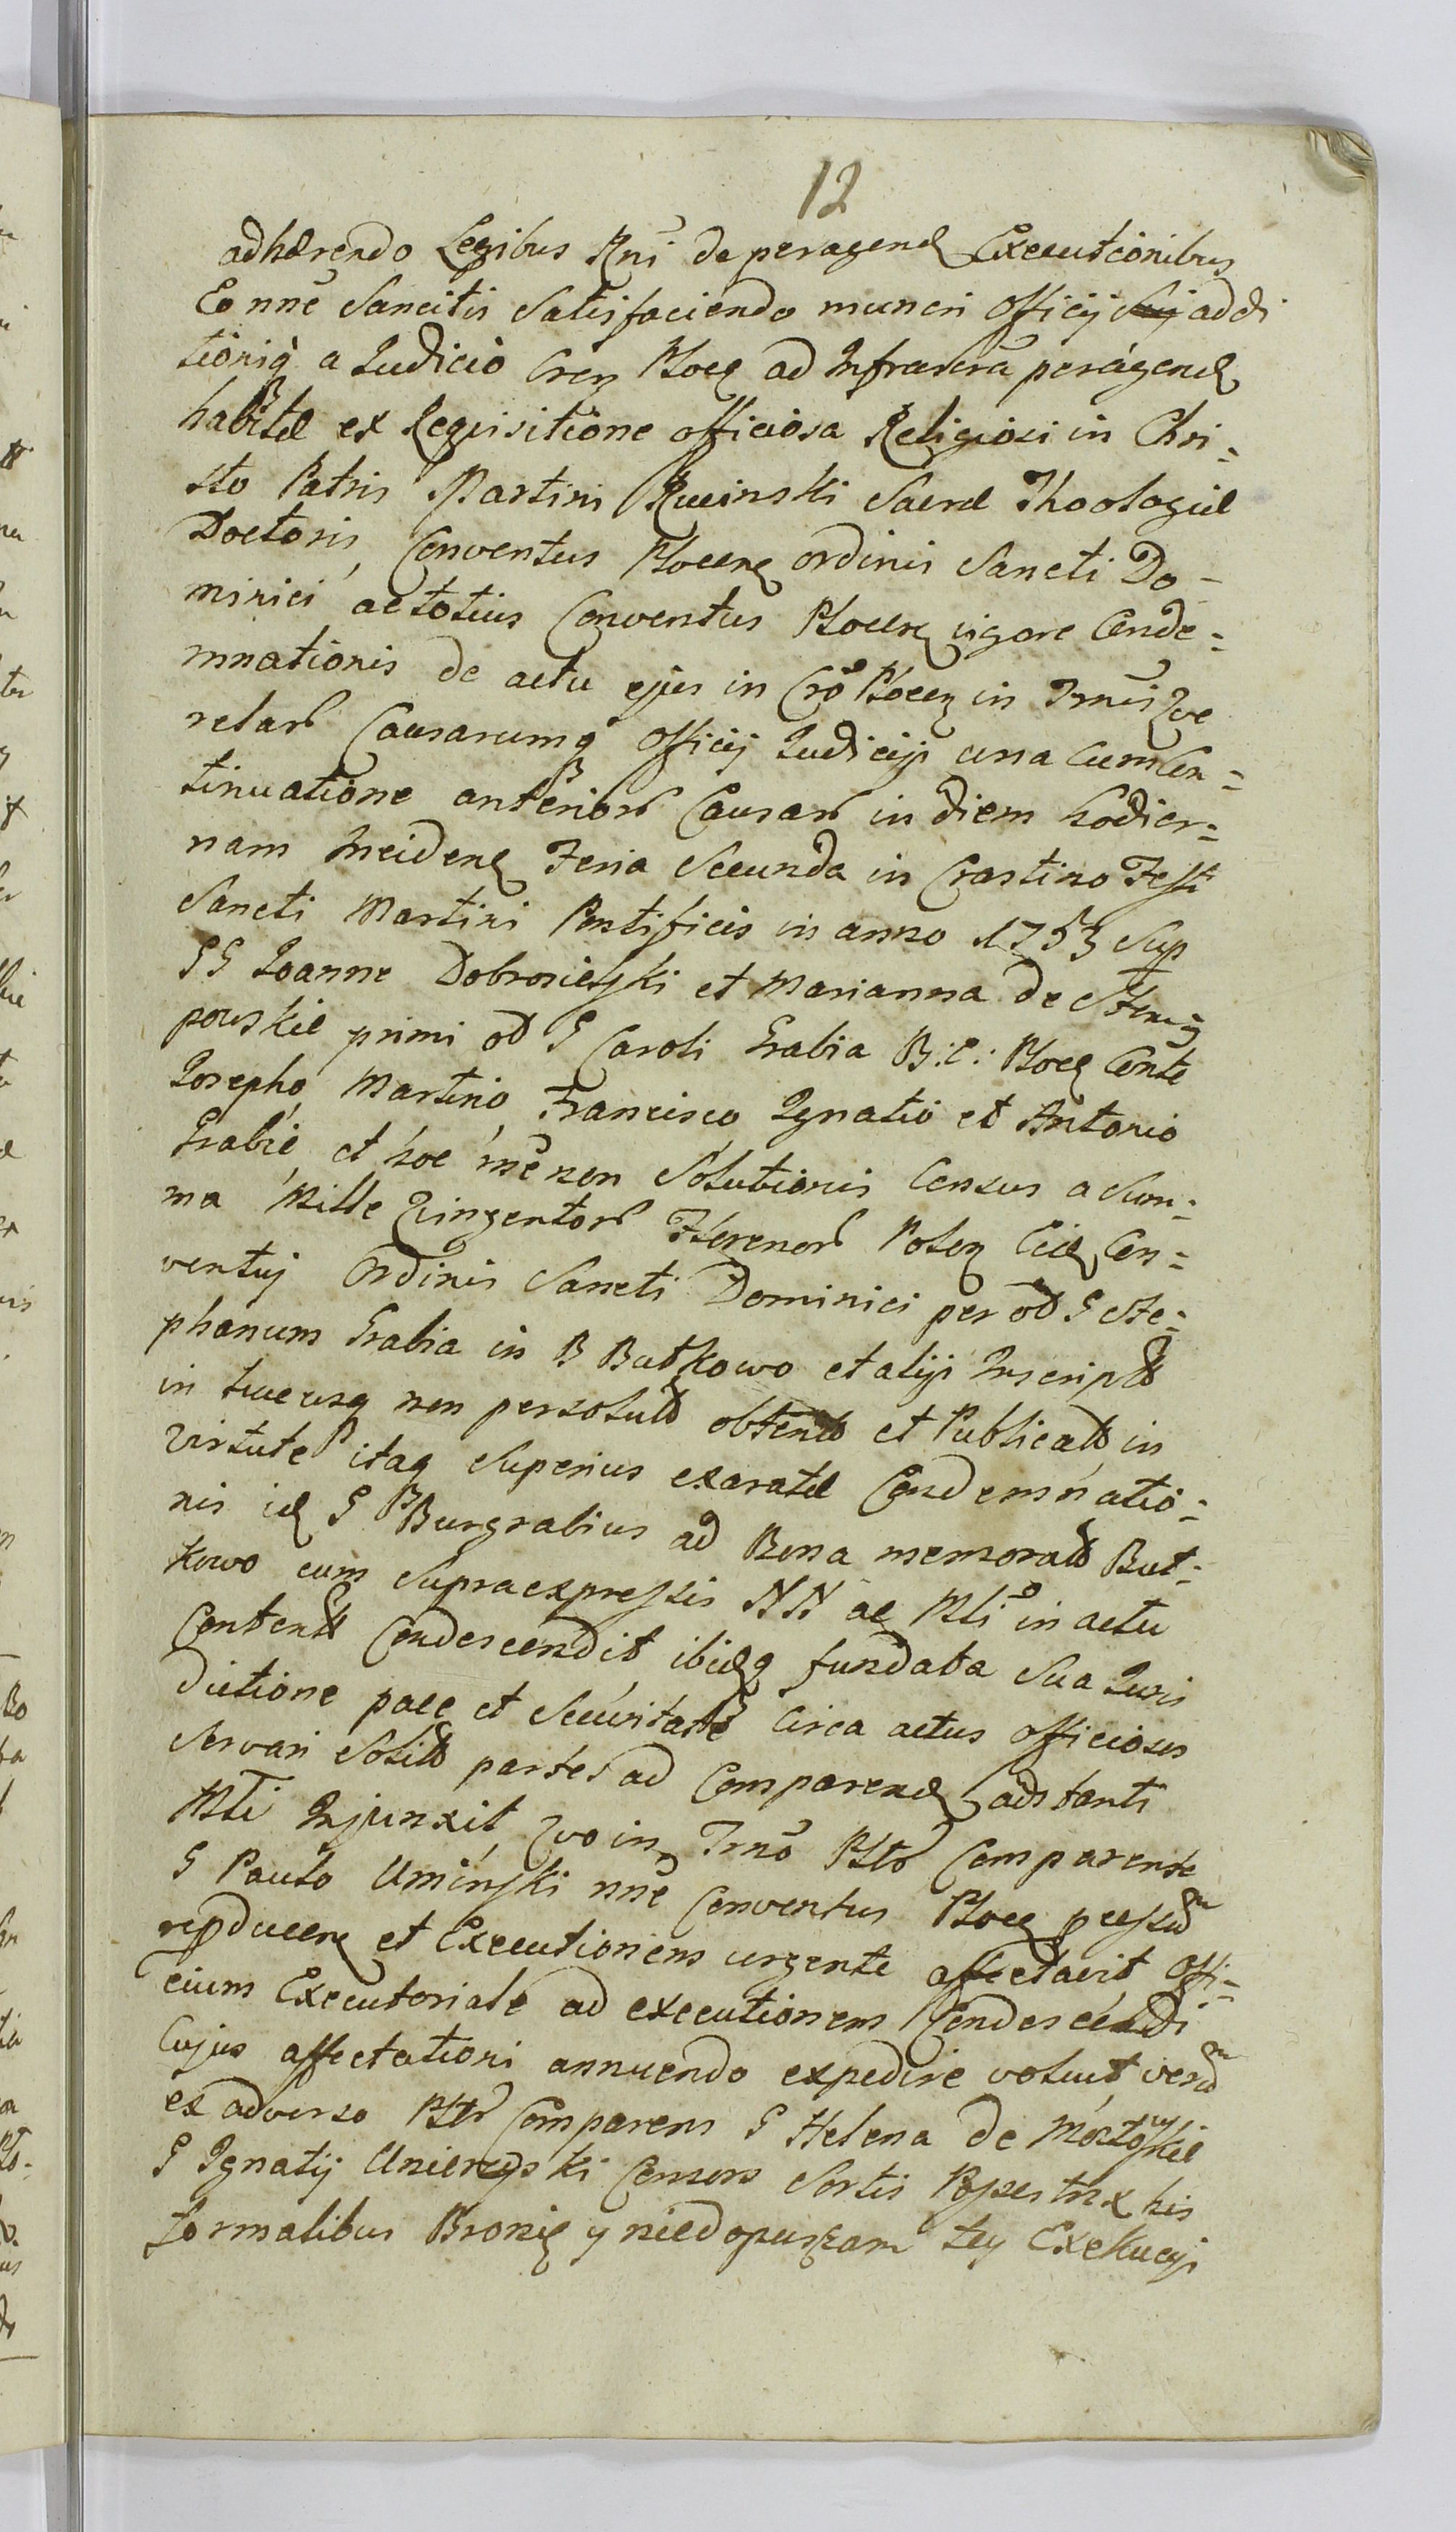 12
adhærendo Legibus Rni de peragend Executionibus
Eo nne Sancitis Satisfaciendo muneri Officij addi
tioniq a Judicio Cren Plocq ad Infrascra peragend
habitæ ex Requisitione officiosa Religiosi in Chri=
sto Patris Martini Rucinski Sacræ Theologiæ
Doctoris, Conventus Plocen ordinis Sancti Do-
minici ac totius Conventus Plocen vigore Conde=
mnationis de actu ejus in Cro Plocen in Trnis Qe
relar Causarumq Officij Judicijs una cum Con=
tinuatione anterior Causar in diem hodier=
nam Incidenq Feria Secunda in Crastino Festi
Sancti Martini Pontificis in anno 1753 Sup
GG Joanne Dobrosielski et Marianna de
powskie primi od G Caroli Grabia B: C: Plocq Conte
Josepho, Martino, Francisco, Ignatio et Antonio
Grabie, et hoc rne non Solutionis Census a Sum=
ma Mille Qingentor Florenor Polon Eidq Con=
ventuj Ordinis Sancti Dominici per od G Ste=
phanum Grabia in B Butkowo et alijs Inscript
in hucusq non persolut obtent et Publicat, in
virtute itaq Superius exaratæ Condemnatio=
nis idq G Burgrabius ad Bona memorat But=
kowo cum Supraexpressis NN ac Mli in actu
Content Condescendit ibidq fundata Sua Juris
dictione pace et Securitate circa actus officiosos
Servari Solit partes ad Comparend adstanti
Mli Injunxit, Qo in Trno Pltr Comparente
G Paulo Umiński nne Conventus Plocq
repducen et Executionem urgente affectavit Offi=
cium Executoriale ad executionem Condescendi
Cujus affectationi annuendo expedire voluit, verum
ex adverso Pltr Comparens G Helena de
G Ignatij Unierzyski Consors Sortis Possestrix his
formalibus Bronię y niedopuszczam tey Exekucyi